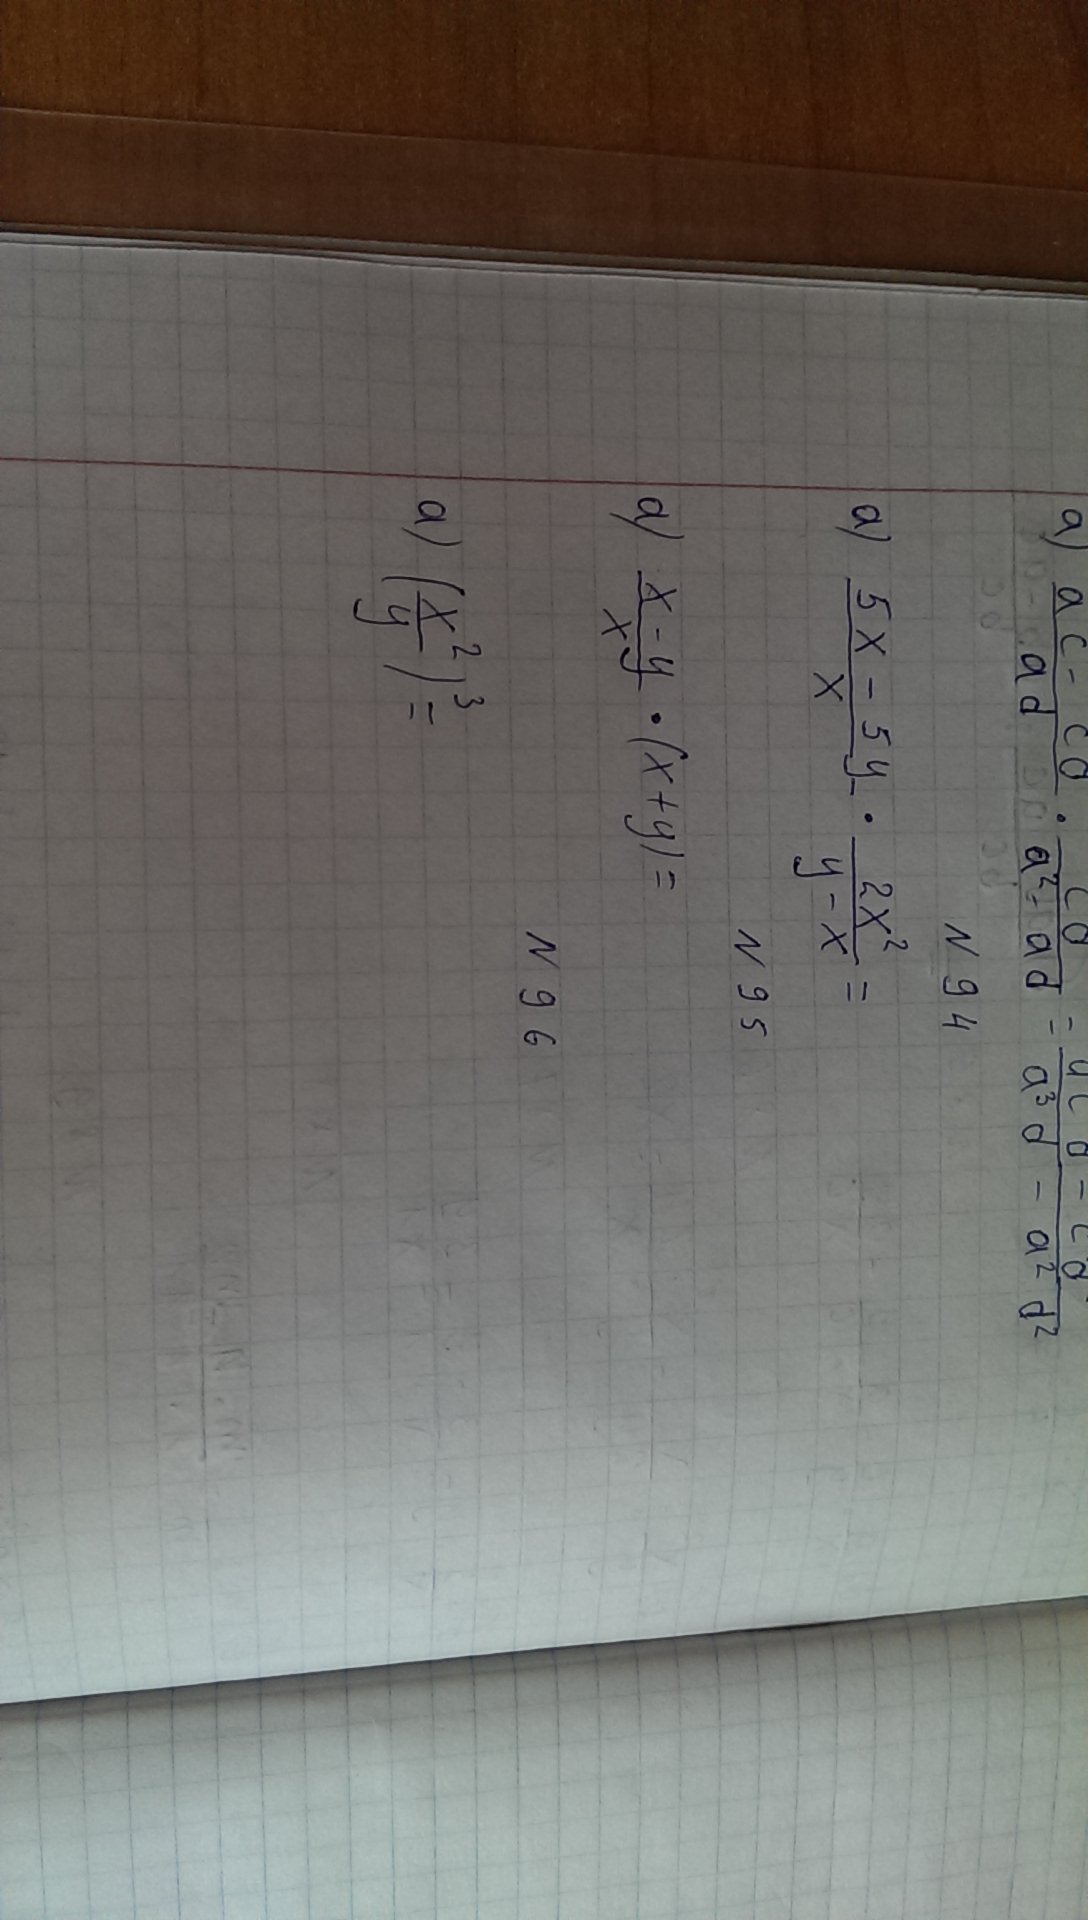 а) (ac - cd)/ad · cd/(a² - ad) = (acd - cd)/(a³d - a²d²)
N 94
а) (5x - 5y)/x · 2x²/(y - x) =
N 95
а) (x - y)/x · (x + y) =
N 96
а) (x²/y)³ =